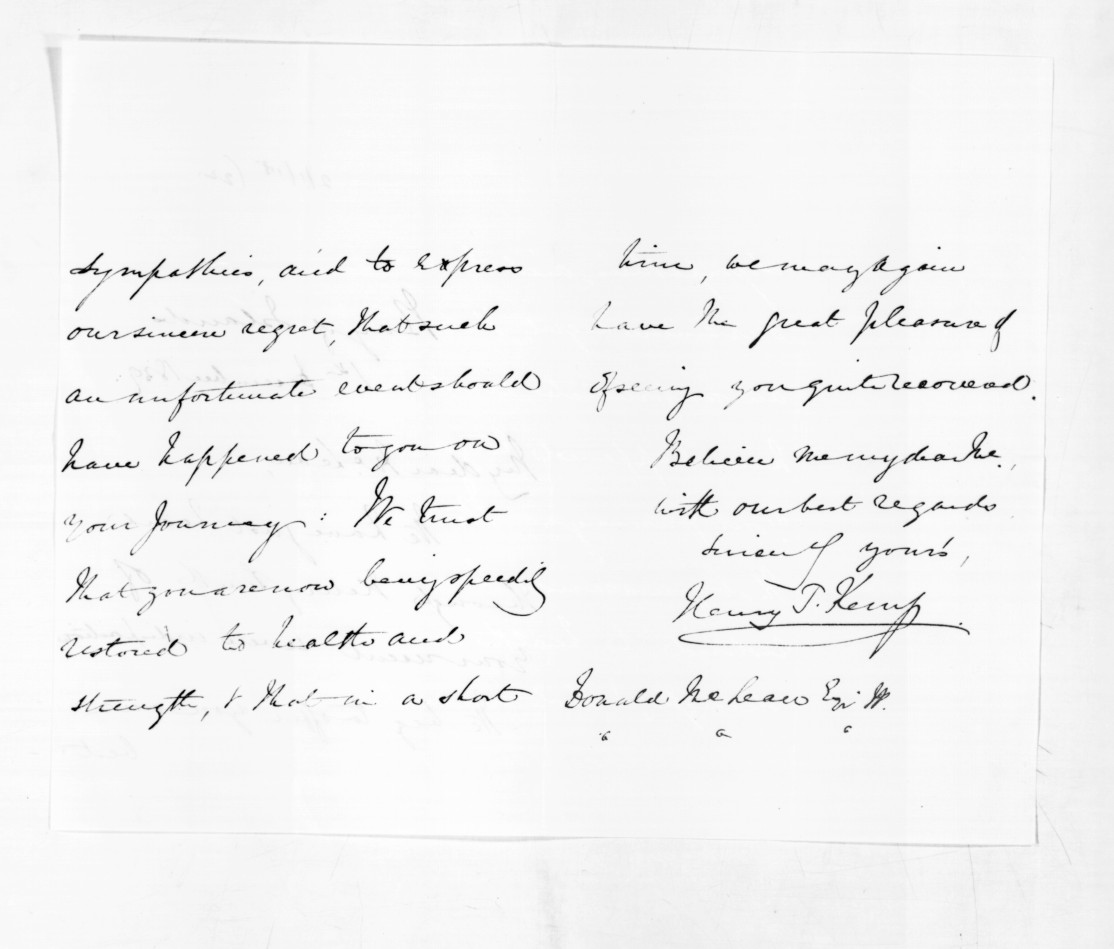 sympathies, and to express
our sincere regret, that such
an unfortunate event should
have happened to you on
your Journey: We trust
that you are now being speedily
restored to health and
strength, & that in a short
time, we may again
have the great pleasure of
of seeing you quite recovered.
Believe me my dear Mc.,
with our best regards
sincerely yours,
Henry T. Kemp.
Donald McLean Esqr